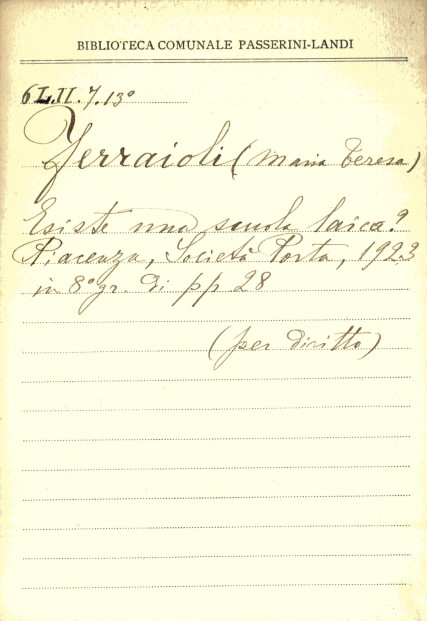 BIBLIOTECA COMUNALE PASSERINI-LANDI
6 L.II.7.13°
Ferraioli (Maria Teresa)
Esiste una scuola laica?
Piacenza, Società Porta, 1923
in 8° gr. di pp 28
(per diritto)